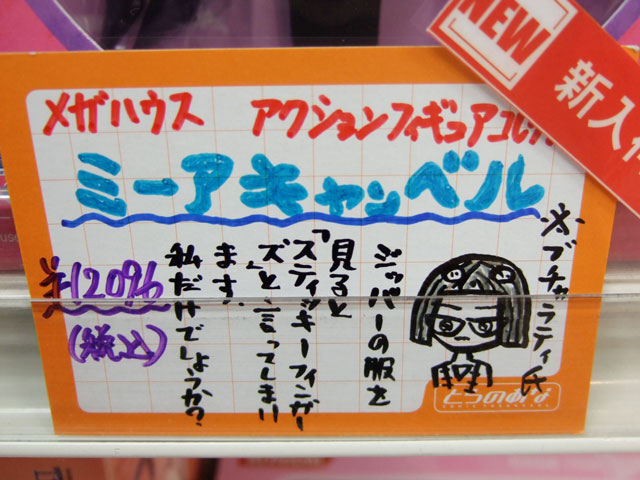 NEW
新入荷
メガハウス アクションフィギュアコレ
ミーアキャンベル
※ブチャラティ氏
ジッパーの服を
見ると
「スティッキーフィンガー
ズ」と言ってしまい
ます。
私だけでしょうか?
¥12096
(税込)
とらのあな